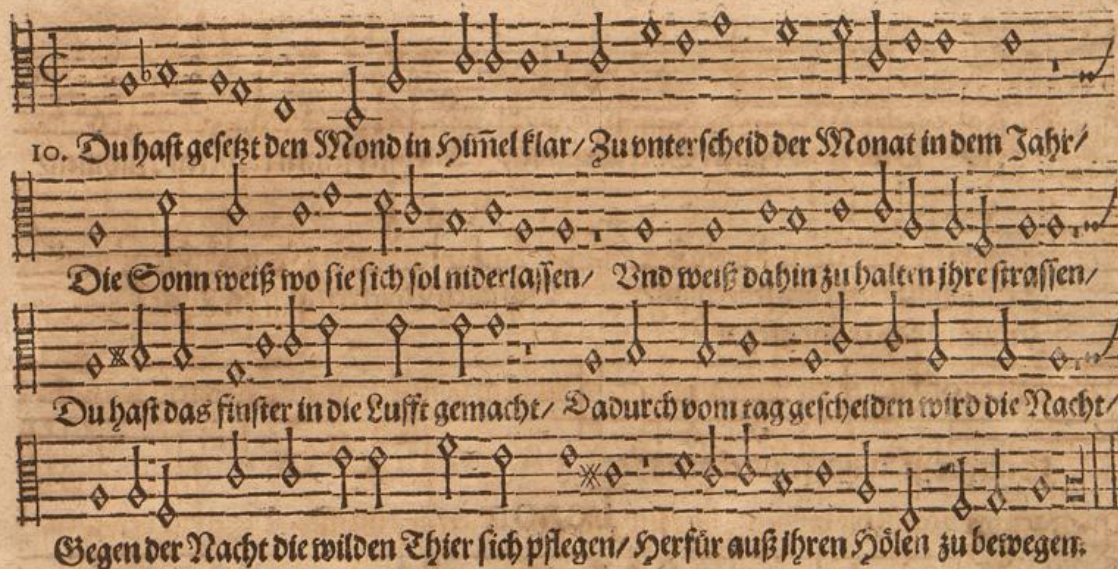 10. Du hast gesetzt den Mond in Him̃el klar/ Zu vnterscheid der Monat in dem Jahr/
Die Sonn weiß wo sie sich sol niderlassen/ Vnd weiß dahin zu halten jhre strassen/
Du hast das finster in die Lufft gemacht/ Dadurch vom tag gescheiden wird die Nacht/
Gegen der Nacht die wilden Thier sich pflegen/ Herfür auß jhren Hölen zu bewegen.